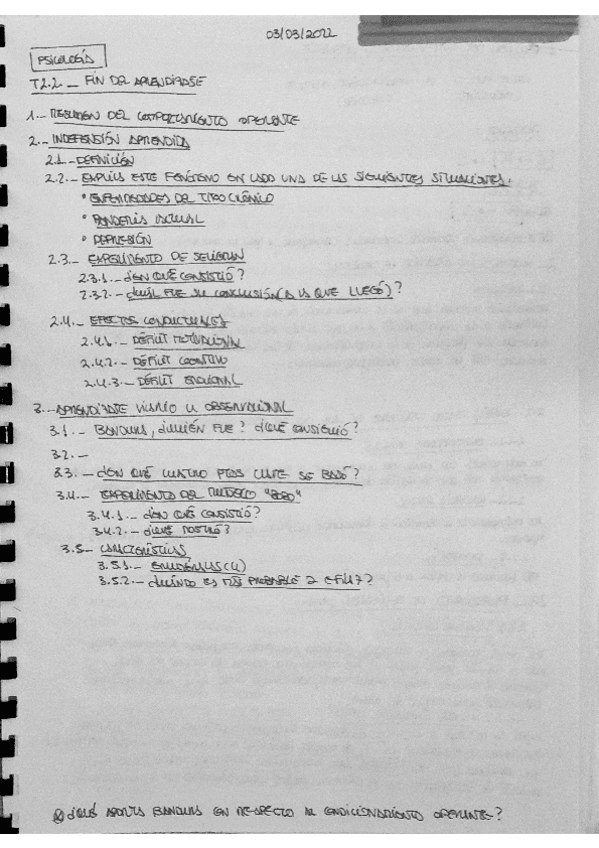 03/03/2022
PSICOLOGÍA
T2.2._ FIN DEL APRENDIZAJE
1._ RESUMEN DEL COMPORTAMIENTO OPERANTE
2._ INDEFENSIÓN APRENDIDA
2.1._ DEFINICIÓN
2.2._ EXPLICA ESTE FENÓMENO EN CADA UNA DE LAS SIGUIENTES SITUACIONES.
• ENFERMEDADES DE TIPO CRÓNICO
• PANDEMIA ACTUAL
• DEPRESIÓN
2.3._ EXPERIMENTO DE SELIGMAN
2.3.1._ ¿EN QUÉ CONSISTIÓ?
2.3.2._ ¿CUÁL FUE SU CONCLUSIÓN (A LA QUE LLEGÓ)?
2.4._ EFECTOS CONDUCTUALES
2.4.1._ DÉFICIT MOTIVACIONAL
2.4.2._ DÉFICIT COGNITIVO
2.4.3._ DÉFICIT EMOCIONAL
3._ APRENDIZAJE VICARIO U OBSERVACIONAL
3.1._ BANDURA, ¿QUIÉN FUE? ¿QUÉ CONSIGUIÓ?
3.2._
3.3._ ¿EN QUÉ CUATRO PTOS CLAVE SE BASÓ?
3.4._ EXPERIMENTO DEL MUÑECO "BOBO"
3.4.1._ ¿EN QUÉ CONSISTIÓ?
3.4.2._ ¿QUÉ MOSTRÓ?
3.5._ CARACTERÍSTICAS
3.5.1._ (4)
3.5.2._ ¿CUÁNDO ES MÁS PROBABLE Q EFICAZ?
¿QUÉ APORTA BANDURA CON RESPECTO AL CONDICIONAMIENTO OPERANTE?